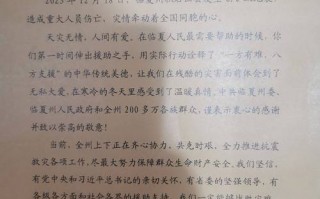 造成重大人员伤亡，灾情牵动着全国同胞的心。
天灾无情，人间有爱。在临夏人民最需要帮助的时候，你
们第一时间伸出援助之手，用实际行动诠释了“一方有难，八
方支援”的中华传统美德，让我们在残酷的灾害面前体会到了
无私大爱，在寒冷的冬天里感受到了温暖真情。中共临夏州委、
临夏州人民政府和全州 200 多万各族群众，谨表示衷心的感谢
并致以崇高的敬意！
当前，全州上下正在齐心协力、共克时艰，全力推进抗震
救灾各项工作，尽最大努力保障群众生命财产安全。我们坚信，
有党中央和习近平总书记的亲切关怀，有省委的坚强领导，有